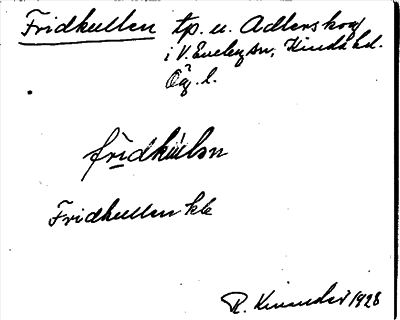 Fridkullen tp. u. Adlerskog
i V. Eneby sn, Kinda hd.
Ög. l.
frìdkùlən
Fridkullen kk
1928